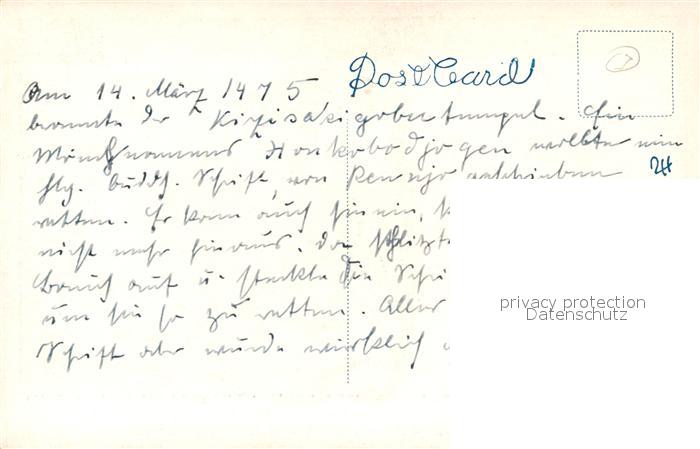 PostCard
Am 14. März 1475
brannte der Kizisakigobutempel. Ein
Mönch namens Honkobodjogen wollte eine
hlg. buddh. Schrift, von Rennjo geschrieben
24
retten. Er kam auch hinein,
nicht mehr hinaus. Da schlitzte
Bauch auf u. steckte die
um sie so zu retten. Alles
Schrift aber wurde wirklich
privacy protection
Datenschutz